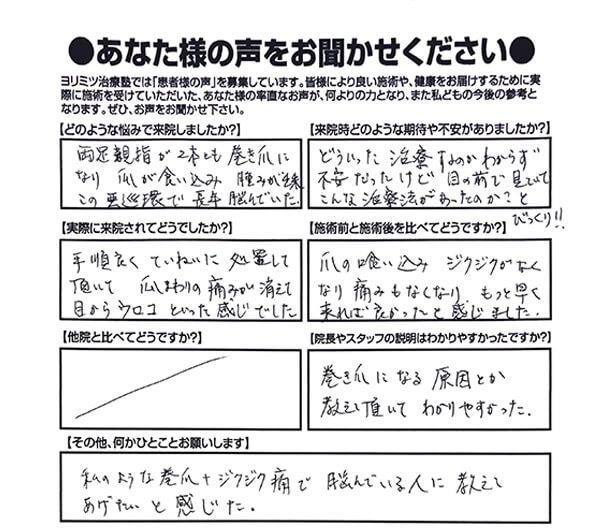 ●あなた様の声をお聞かせください●
ヨリミツ治療塾では「患者様の声」を募集しています。皆様により良い施術や、健康をお届けするために実
際に施術を受けていただいた、あなた様の率直なお声が、何よりの力となり、また私どもの今後の参考と
なります。ぜひ、お声をお聞かせ下さい。
【どのような悩みで来院しましたか?】
両足親指が2本とも巻き爪に
なり 爪が食い込み 膿みが
この悪巡環で長年悩んでいた.
【来院時どのような期待や不安がありましたか?】
どういった治療するのかわからず
不安だったけど 目の前で見ていて
こんな治療法があったのか?と
びっくり!!
【実際に来院されてどうでしたか?】
手順良くていねいに処置して
頂いて 爪まわりの痛みが消えて
目からウロコといった感じでした
【施術前と施術後を比べてどうですか?】
爪の喰い込み ジクジクがなく
なり痛みもなくなり もっと早く
来れば良かったと感じました.
【他院と比べてどうですか?】
【院長やスタッフの説明はわかりやすかったですか?】
巻き爪になる原因とか
教え頂いてわかりやすかった.
【その他、何かひとことお願いします】
私のような巻爪+ジクジク痛で悩んでいる人に教えて
あげたいと感じた.